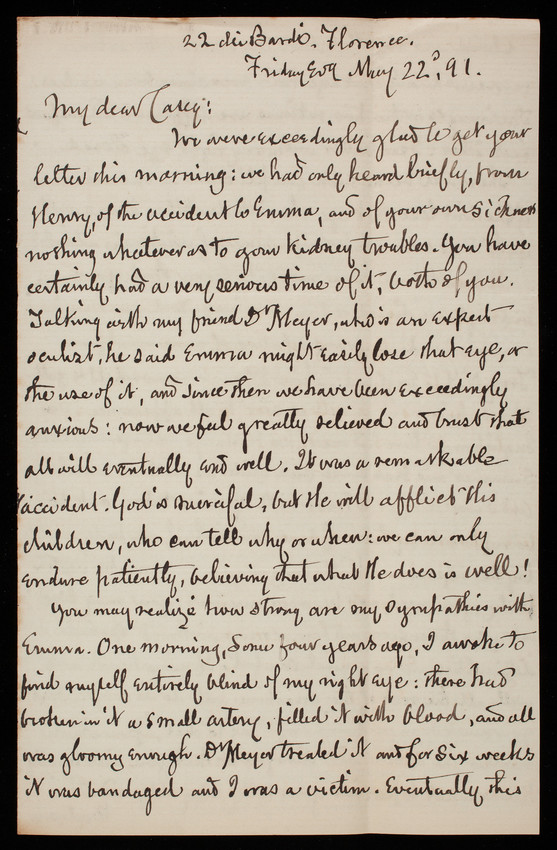 22 dei Bardi. Florence.
Friday Evg May 22d, 91.
My dear Casey:
We were exceedingly glad to get your
letter this morning: we had only heard briefly, from
Henry, of the accident to Emma, and of your own sickness
nothing whatever as to your kidney troubles. You have
certainly had a very serious time of it, both of you.
Talking with my friend Dr Meyer, who is an expert
oculist, he said Emma might easily lose that eye, or
the use of it, and since then we have been exceedingly
anxious: now we feel greatly relieved and trust that
all will eventually end well. It was a remarkable
accident. God is merciful, but He will afflict His
children, who can tell why or when: we can only
endure patiently, believing that what He does is well!
You may realize how strong are my sympathies with
Emma. One morning, some four years ago, I awoke to
find myself entirely blind of my right eye: there had
broken in it a small artery, filled it with blood, and all
was gloomy enough. Dr Meyer treated it and for six weeks
it was bandaged and I was a victim. Eventually this